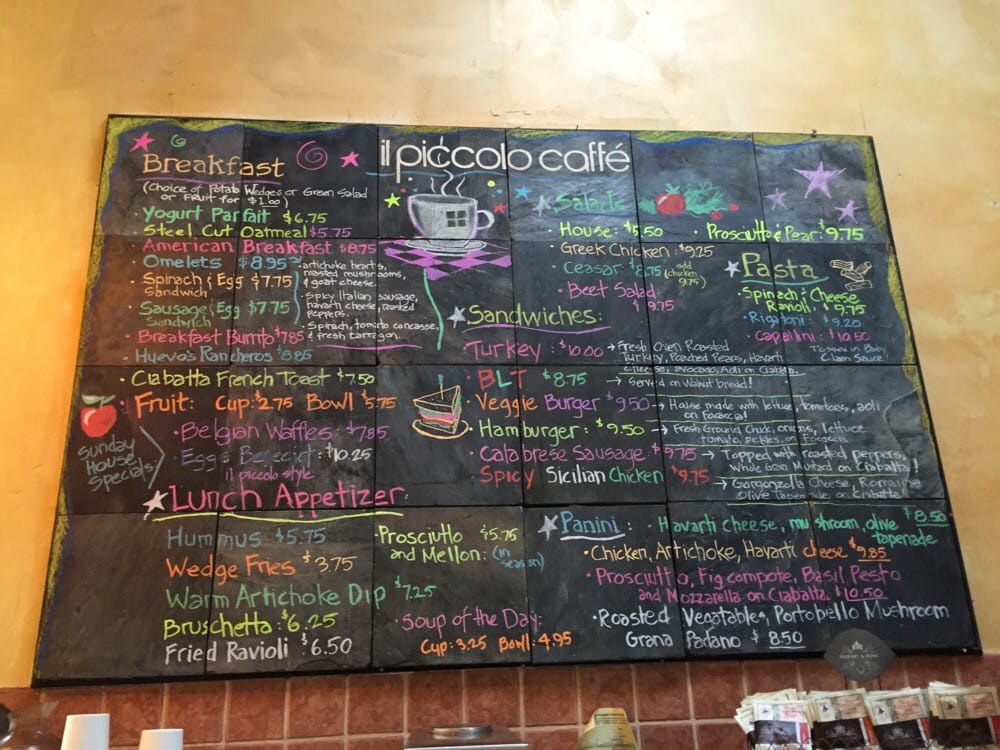 il piccolo caffé
Breakfast
(Choice of Potato Wedges or Green Salad
or Fruit for $1.00)
Yogurt Parfait $6.75
Steel Cut Oatmeal $5.75
American Breakfast $8.75
Omelets $8.95
artichoke hearts,
roasted mushrooms,
& goat cheese.
Spicy Italian sausage,
havarti cheese, roasted
peppers.
Spinach, tomato concasse,
& fresh tarragon.
Spinach & Egg $7.75
Sandwich
Sausage & Egg $7.75
Sandwich
Breakfast Burrito $7.85
Huevo's Rancheros $8.85
Ciabatta French Toast $7.50
Fruit: Cup: $2.75 Bowl $5.75
Sunday
House
Specials
Belgian Waffles: $7.85
Eggs Benedict: $10.25
il piccolo style
Lunch Appetizer
Hummus $5.75
Wedge Fries $3.75
Warm Artichoke Dip $7.25
Bruschetta: $6.25
Fried Ravioli $6.50
Prosciutto $5.75
and Mellon: (in
season)
Soup of the Day:
Cup: 3.25 Bowl: 4.95
Salads
House: $5.50
Greek Chicken: $9.25
Ceasar: $8.75 (add
chicken
9.75)
Beet Salad:
$9.75
Prosciutto & Pear: $9.75
Pasta
Spinach & Cheese
Ravioli: $9.75
Rigatoni: $9.20
Capellini: $10.50
Clam Sauce
Sandwiches:
Turkey: $10.00 → Fresh Oven Roasted
Turkey, Poached Pears, Havarti
Cheese, avocado, Aoli on Ciabatta
BLT $8.75 → Served on Walnut bread!
Veggie Burger $9.50 → House made with lettuce, Tomatoes, aoli
on Focaccia!
Hamburger: $9.50 → Fresh Ground Chuck, onions, lettuce
tomato, pickles, on Focaccia
Calabrese Sausage $9.75 → Topped with roasted peppers,
Whole Grain Mustard on Ciabatta!
Spicy Sicilian Chicken $9.75 → Gorgonzola Cheese, Romaine
Olive Tapenade on Ciabatta
Panini: Havarti cheese, mushroom, olive $8.50
tapenade
Chicken, Artichoke, Havarti cheese $9.85
Prosciutto, Fig compote, Basil Pesto
and Mozzarella on Ciabatta. $10.50
Roasted Vegetables, Portobello Mushroom
Grana Padano $8.50